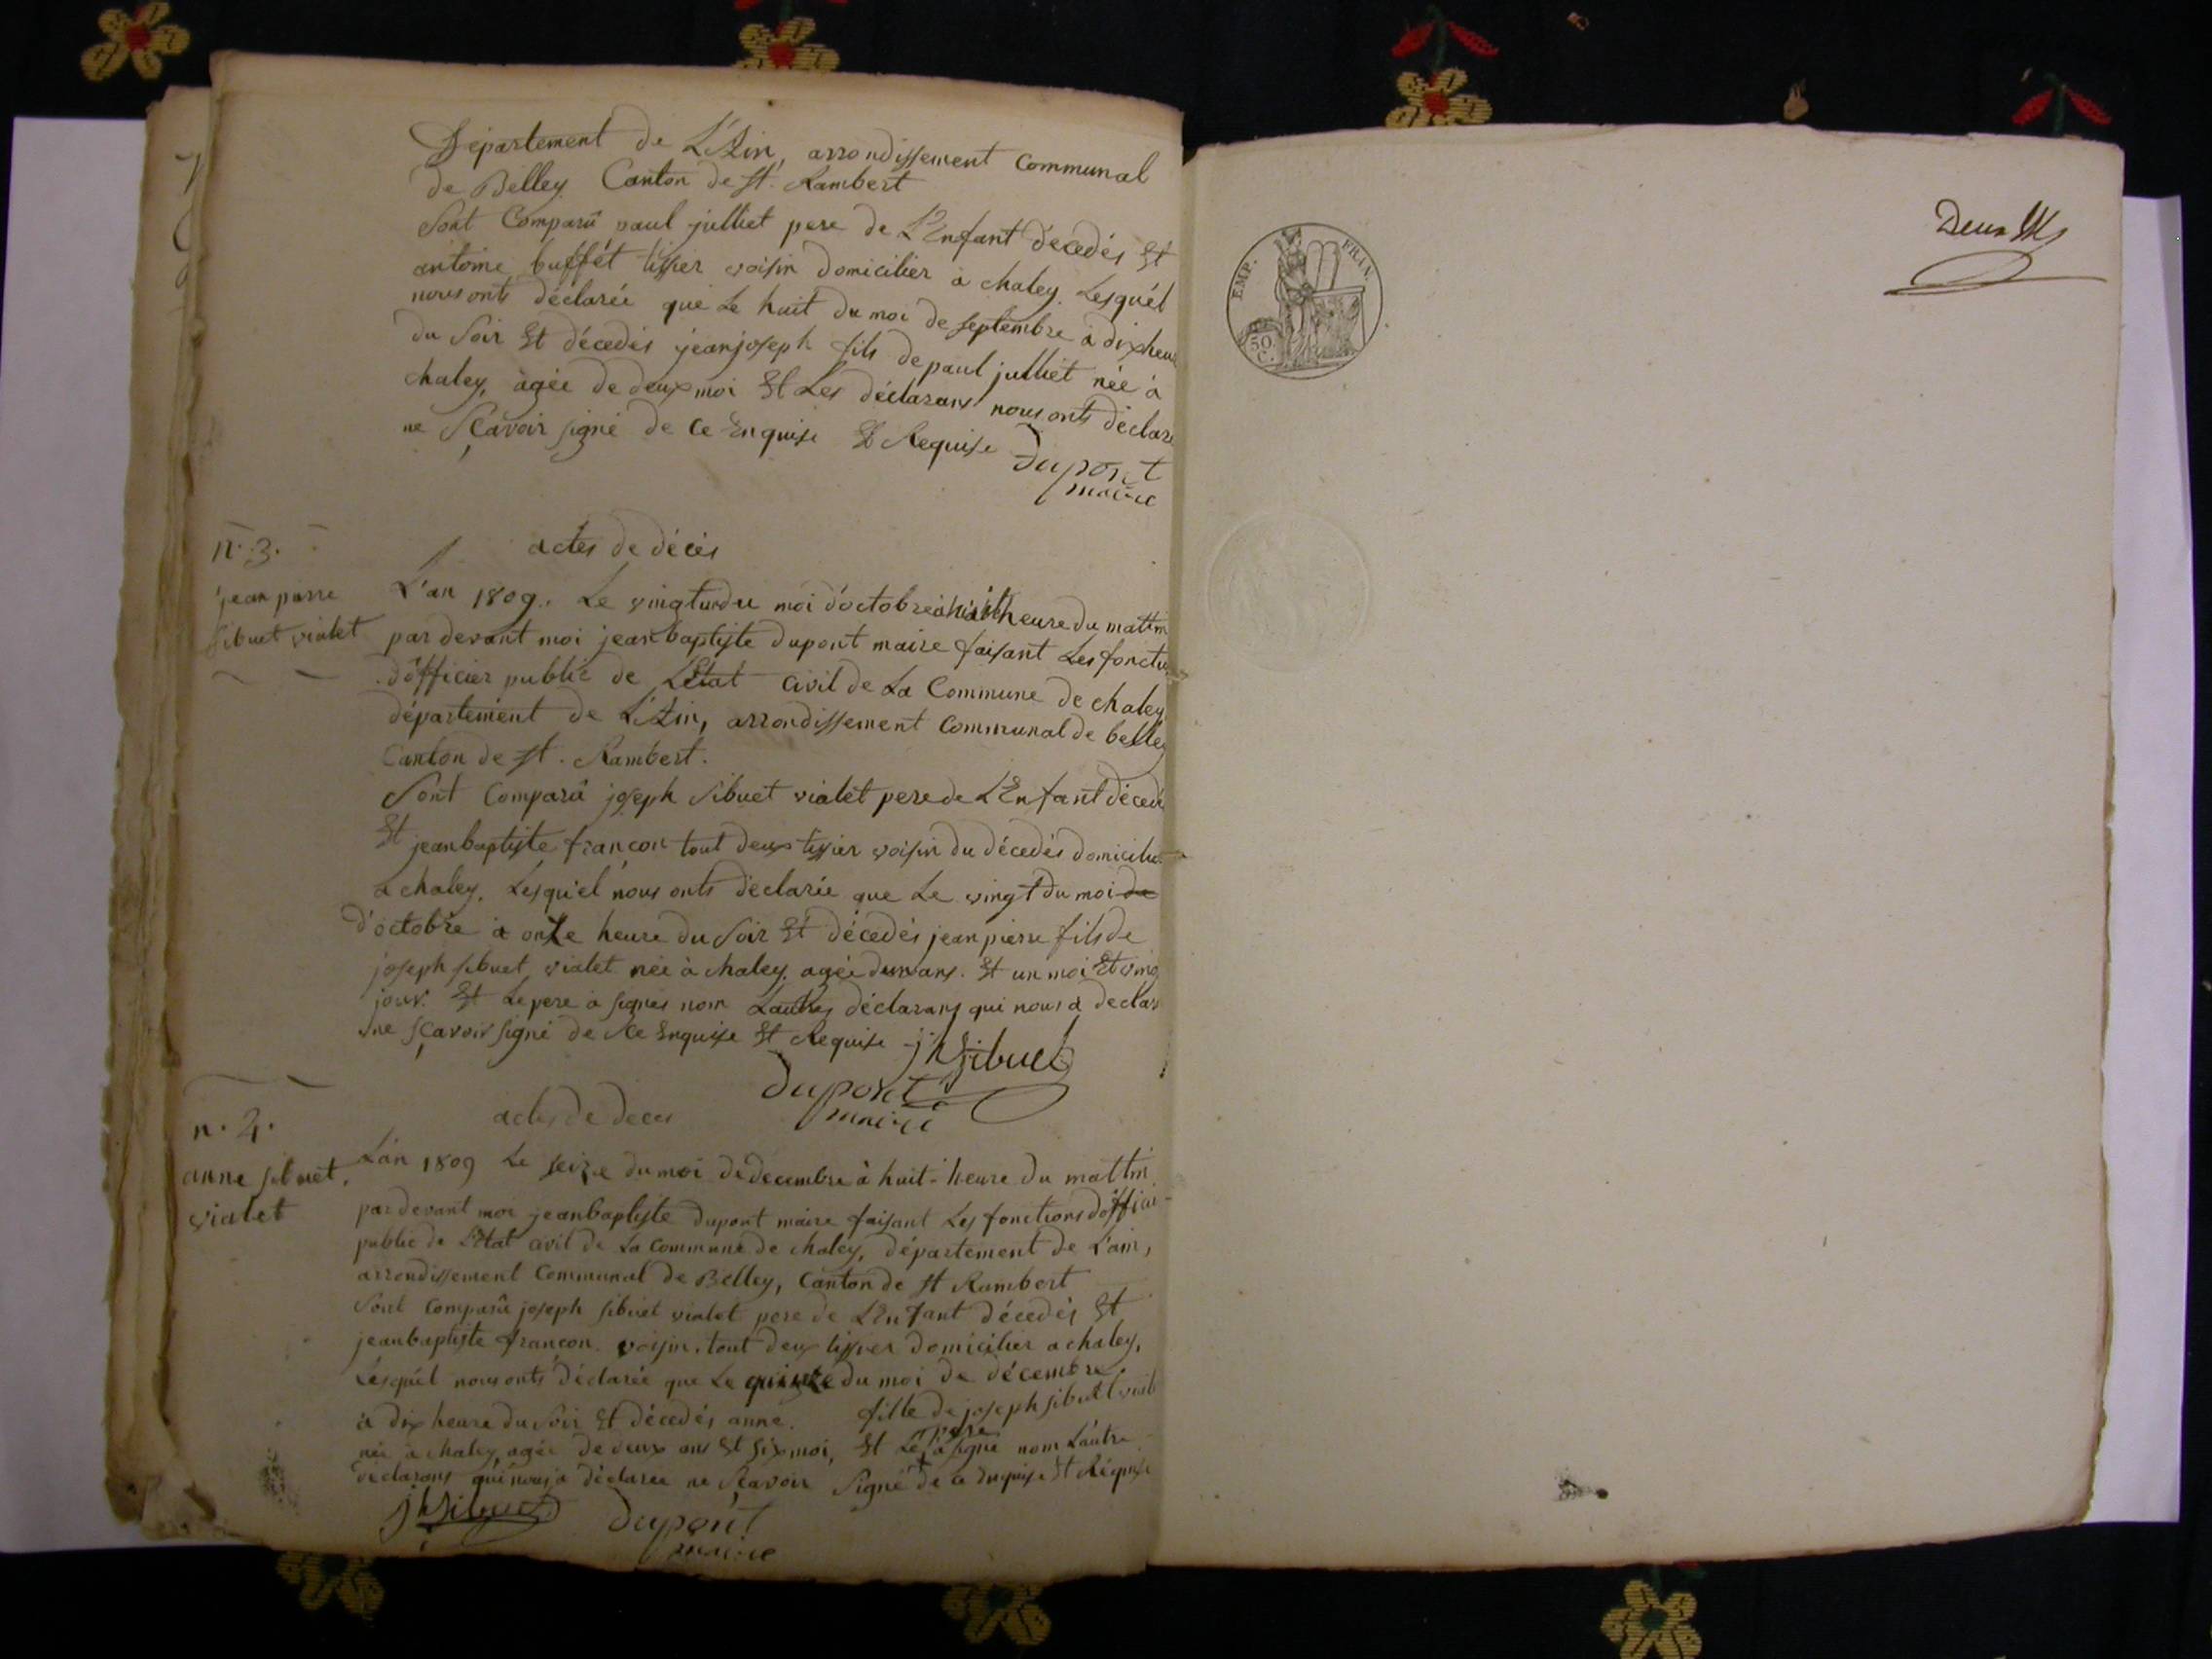 Département de L'Ain, arrondissement Communal
de Belley Canton de st. Rambert
Sont Comparû paul julliet pere de L'Enfant décedés Et
antoine buffét tissier voisin domicilier à chaley. Lesquél
nous onts déclarée que Le huit du moi de septembre à dix heu
du Soir Et décedés jeanjoseph fils de paul julliét née à
chaley, agée de deux moi Et Les déclarans nous onts déclare
ne Sçavoir signé de Ce Enquise Et Requise
Dupont
maire
n. 3.
jean pierre
sibuet vialet
actes de décès
L'an 1809. Le vingtundu moi d'octobre à huit heure du mattin
par devant moi jeanbaptiste dupont maire faisant Les fonctio
d'officier public de L'Etat Civil de La Commune de chaley
département de L'Ain, arrondissement Communal de belley
Canton de st. Rambert.
Sont Comparû joseph sibuet vialét pere de L'Enfant décedé
Et jeanbaptiste françon tout deux tissier voisin du décedés domicilie
a chaley, Lesquél nous onts déclarée que Le vingt du moi de
d'octobre à onze heure du Soir Et décedés jean pierre fils de
joseph sibuet vialet née à chaley. agée dunx ans. Et un moi Et ving
jour. Et Le pere à signés nom Lautres déclarans qui nous a declar
ne sçavoir signé de Ce Enquise Et Requise jh Sibuet
Dupont
maire
n. 4.
anne sibuet.
vialet
actes de deces
L'an 1809 Le seize du moi de decembre à huit heure du mattin
par devant moi jeanbaptiste dupont maire faisant Les fonctions d'officier
public de L'Etat civil de La Commune de chaley, département de L'ain,
arrondissement Communal de Belley, Canton de st Rambert
Sont Comparû joseph sibuet vialet pere de L'Enfant décedés Et
jeanbaptiste françon. voisin. tout deux tissier domicilier a chaley.
Lésquél nous onts déclarée que Le quinze du moi de décembre
à dix heure du Soir Et décedés anne. fille de joseph sibuet vial
née à chaley, agée de deux ans Et six moi, Et Le pere à signé nom Láutre
declarans qui nous à déclarée ne Sçavoir Signé de ce Enquise Et Réquise
jh Sibuet Dupont
maire
EMP. FRAN.
50.
C.
Deux